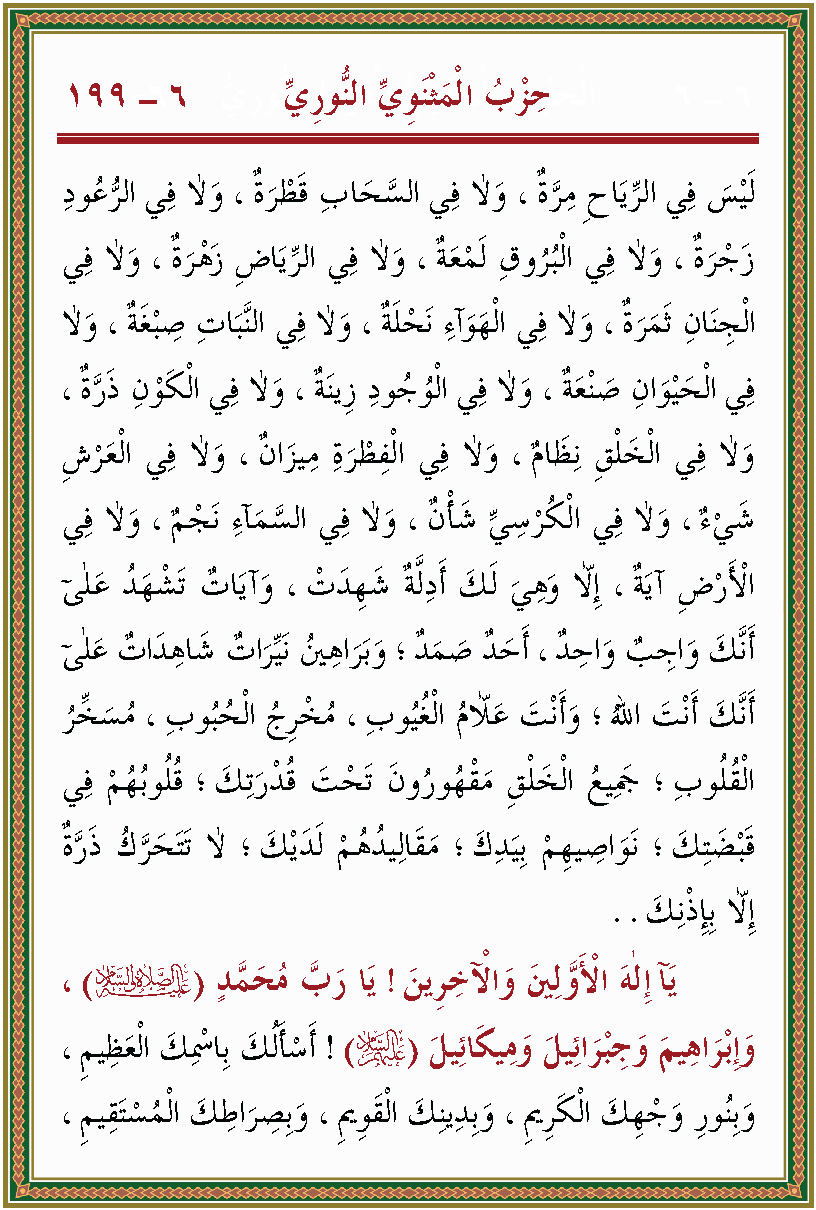 حِزْبُ الْمَثْنَوِيِّ النُّورِيِّ ٦ – ١٩٩
لَيْسَ فِي الرِّيَاحِ مِرَّةٌ ، وَلَا فِي السَّحَابِ قَطْرَةٌ ، وَلَا فِي الرُّعُودِ
زَجْرَةٌ ، وَلَا فِي الْبُرُوقِ لَمْعَةٌ ، وَلَا فِي الرِّيَاضِ زَهْرَةٌ ، وَلَا فِي
الْجِنَانِ ثَمَرَةٌ ، وَلَا فِي الْهَوَآءِ نَحْلَةٌ ، وَلَا فِي النَّبَاتِ صِبْغَةٌ ، وَلَا
فِي الْحَيْوَانِ صَنْعَةٌ ، وَلَا فِي الْوُجُودِ زِينَةٌ ، وَلَا فِي الْكَوْنِ ذَرَّةٌ ،
وَلَا فِي الْخَلْقِ نِظَامٌ ، وَلَا فِي الْفِطْرَةِ مِيزَانٌ ، وَلَا فِي الْعَرْشِ
شَيْءٌ ، وَلَا فِي الْكُرْسِيِّ شَأْنٌ ، وَلَا فِي السَّمَآءِ نَجْمٌ ، وَلَا فِي
الْأَرْضِ آيَةٌ ، إِلَّا وَهِيَ لَكَ أَدِلَّةٌ شَهِدَتْ ، وَآيَاتٌ تَشْهَدُ عَلٰىٓ
أَنَّكَ وَاجِبٌ وَاحِدٌ ، أَحَدٌ صَمَدٌ ؛ وَبَرَاهِينُ نَيِّرَاتٌ شَاهِدَاتٌ عَلٰىٓ
أَنَّكَ أَنْتَ اللهُ ؛ وَأَنْتَ عَلَّامُ الْغُيُوبِ ، مُخْرِجُ الْحُبُوبِ ، مُسَخِّرُ
الْقُلُوبِ ؛ جَمِيعُ الْخَلْقِ مَقْهُورُونَ تَحْتَ قُدْرَتِكَ ؛ قُلُوبُهُمْ فِي
قَبْضَتِكَ ؛ نَوَاصِيهِمْ بِيَدِكَ ؛ مَقَالِيدُهُمْ لَدَيْكَ ؛ لَا تَتَحَرَّكُ ذَرَّةٌ
إِلَّا بِإِذْنِكَ . .
يَآ إِلٰهَ الْأَوَّلِينَ وَالْآخِرِينَ ! يَا رَبَّ مُحَمَّدٍ (عليه الصلاة والسلام) ،
وَإِبْرَاهِيمَ وَجِبْرَائِيلَ وَمِيكَائِيلَ (عليهم السلام) ! أَسْأَلُكَ بِاسْمِكَ الْعَظِيمِ ،
وَبِنُورِ وَجْهِكَ الْكَرِيمِ ، وَبِدِينِكَ الْقَوِيمِ ، وَبِصِرَاطِكَ الْمُسْتَقِيمِ ،